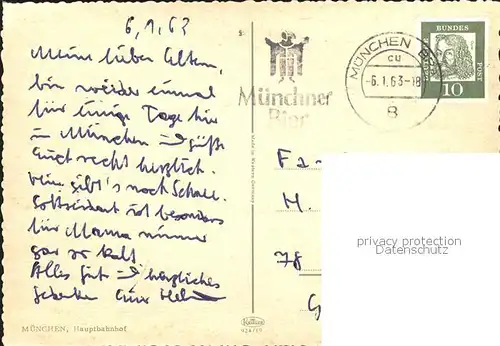 6.1.63
Meine lieben Eltern,
bin wieder einmal
für einige Tage hier
in München und grüße
Euch recht herzlich.
Hier gibt's noch Schnee.
Gottseidank ist besonders
für Mama nimmer
gar so kalt
Alles Gute und herzliches
Gedenken Eure
MÜNCHEN, Hauptbahnhof
Münchner
Bier
MÜNCHEN 8
cu
-6.1.63-18
8
DEUTSCHE BUNDESPOST
10
Fa-
H.
78
G
privacy protection
Datenschutz